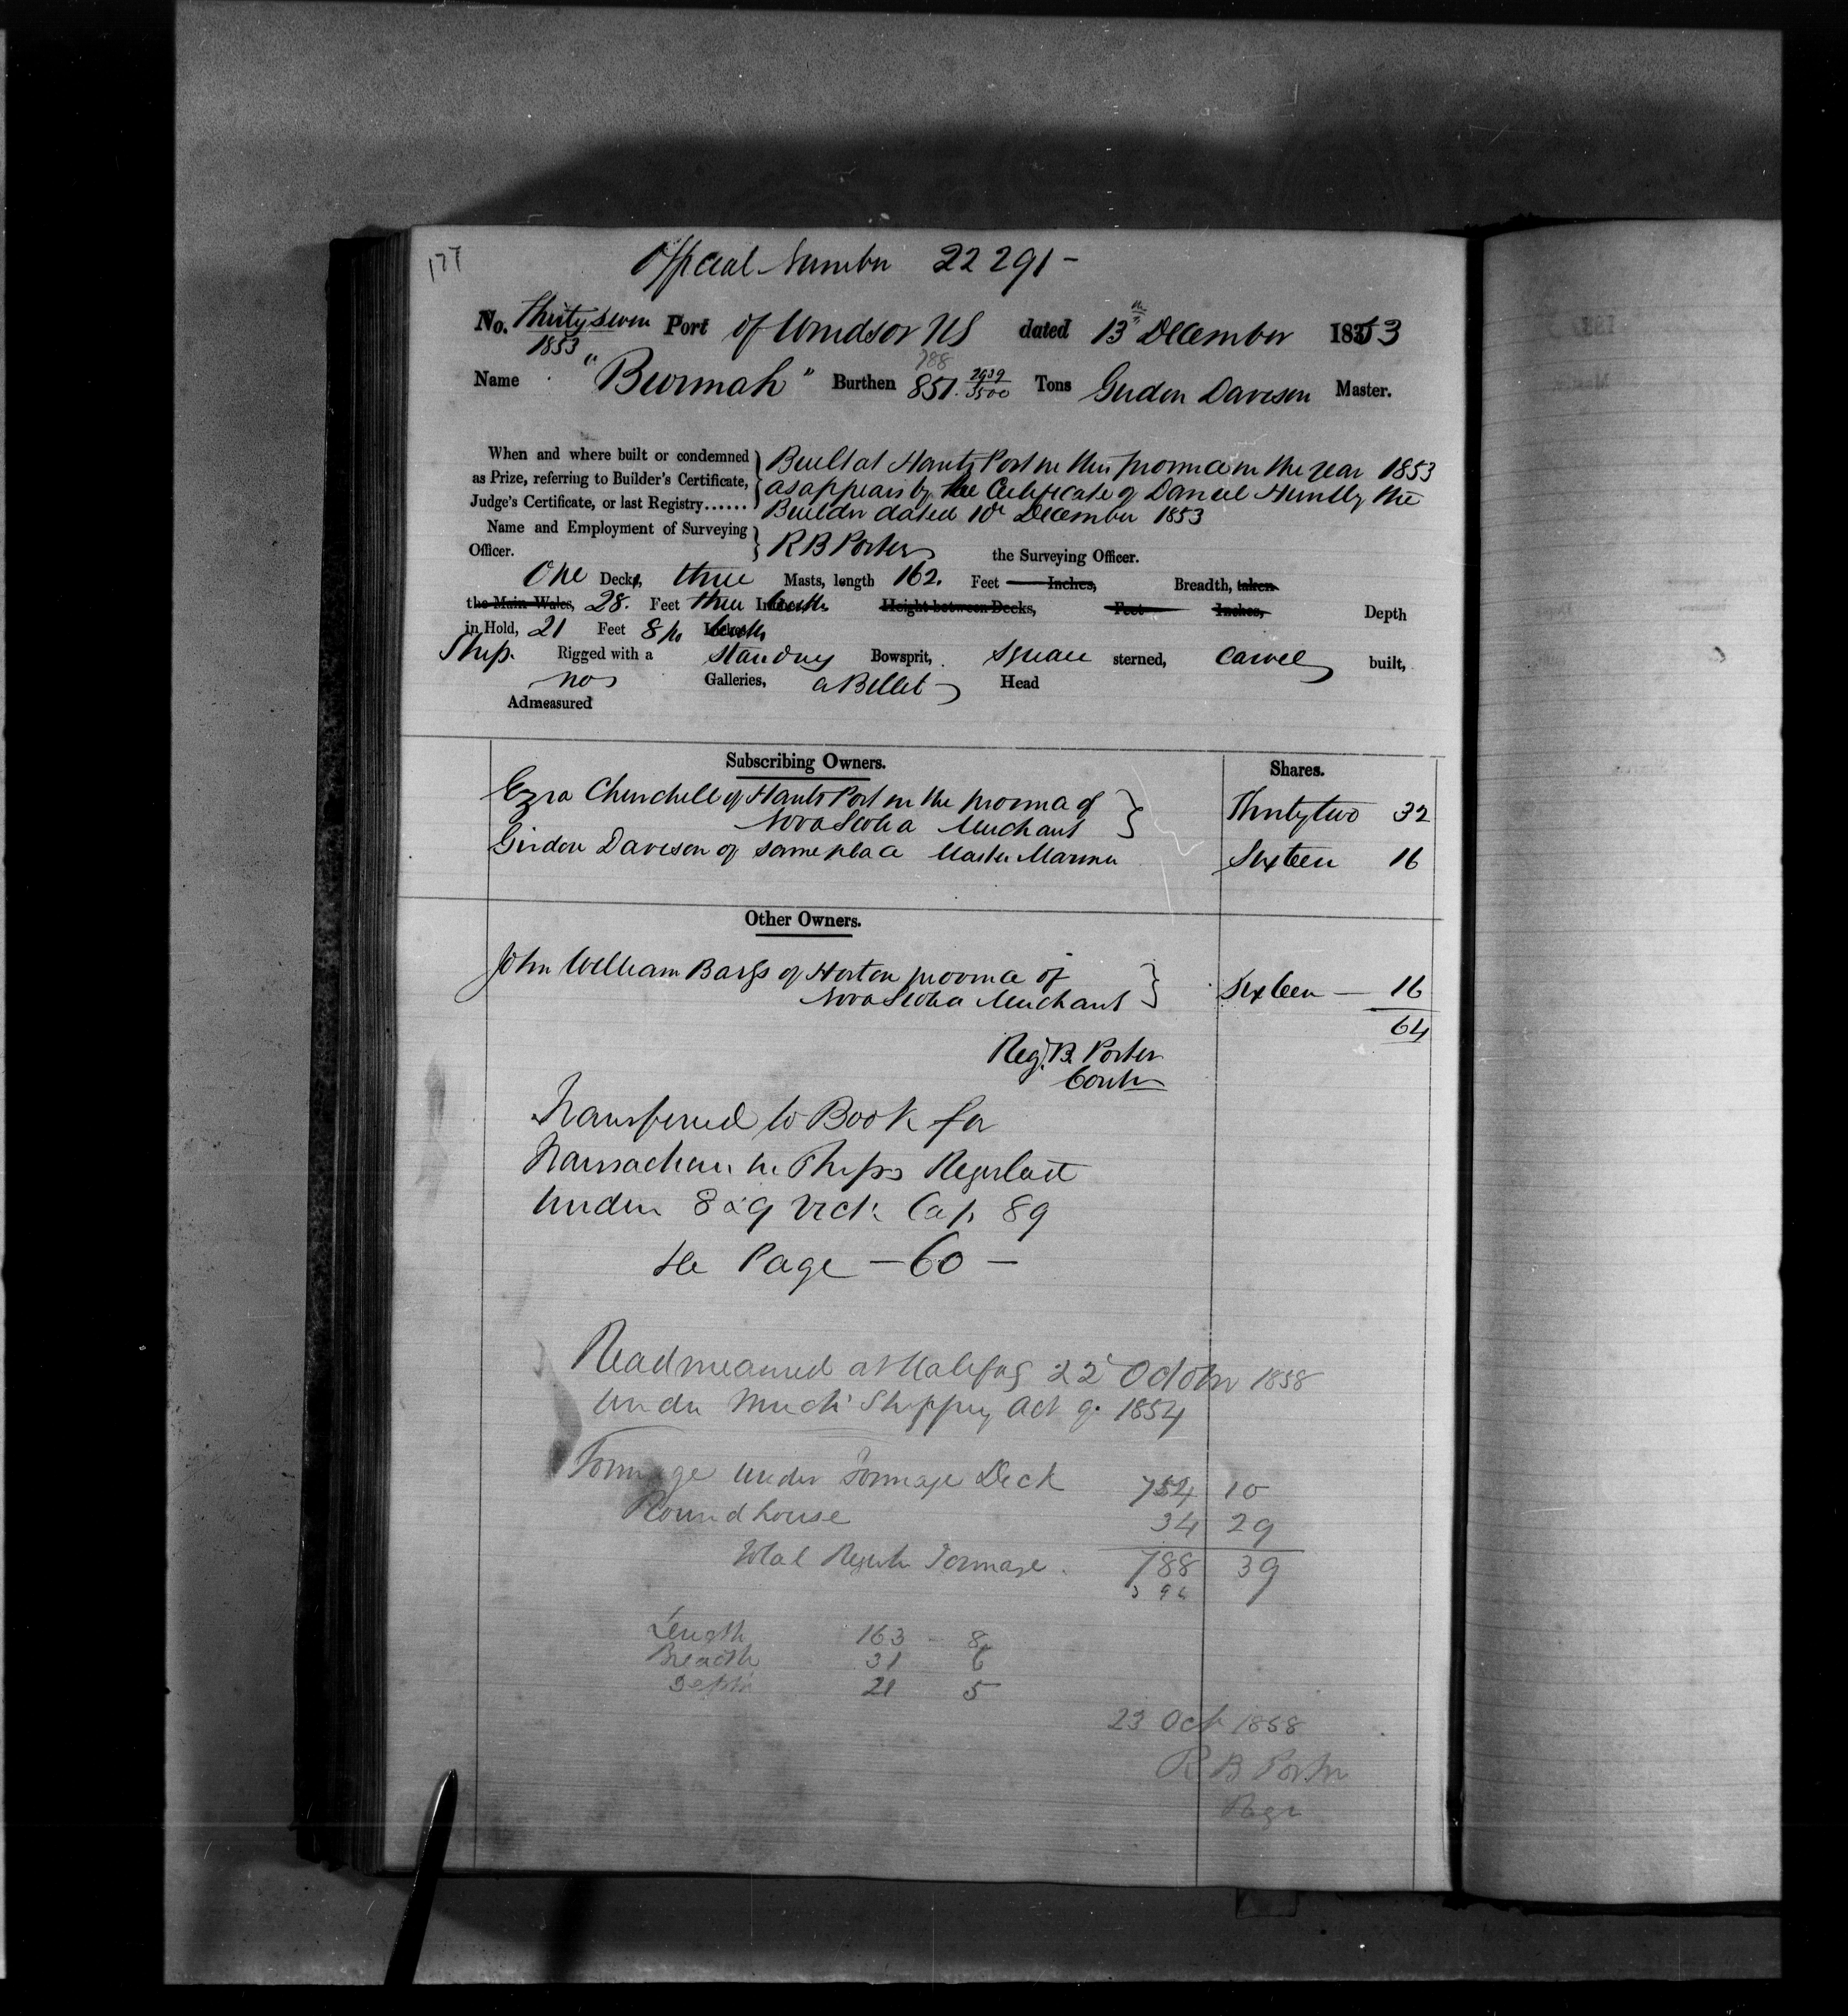 177
Official Number 22 291 -
No. Thirty Seven Port of Windsor NS dated 13th December 1853
1853
788
Name "Burmah" Burthen 851. 2939/3500 Tons Gurdon Davison Master.
When and where built or condemned
as Prize, referring to Builder's Certificate,
Judge's Certificate, or last Registry......
Built at Hants Port in this province in the year 1853
as appears by the Certificate of Daniel Huntly the
Builder dated 10th December 1853
Name and Employment of Surveying
Officer. R B Porter the Surveying Officer.
One Decks, three Masts, length 162. Feet Inches, Breadth, taken
the Main Wales, 28. Feet three tenths Height between Decks, Feet Inches, Depth
in Hold, 21 Feet 8/10 tenths
Ship. Rigged with a standing Bowsprit, Square sterned, Carvel built,
no Galleries, a Billet Head
Admeasured
Subscribing Owners. Shares.
Ezra Churchill of Hants Port in the province of
Nova Scotia Merchant } Thirty two 32
Girdon Davison of same place Master Mariner Sixteen 16
Other Owners.
John William Barss of Horton province of
Nova Scotia Merchant } Sixteen — 16
64
Reg. B. Porter
Contr
Transferred to Book for
Transactions in Ships Registered
under 8 & 9 Vict: Cap 89
See Page - 60 -
Readmeasured at Halifax 22d October 1858
under Mercht Shipping Act of 1854
Tonnage under Tonnage Deck 754 10
Roundhouse 34 29
Total Register Tonnage. 788 39
Length 163 - 8
Breadth 31 6
Depth 21 5
23 Oct 1858
R B Porter
Regr